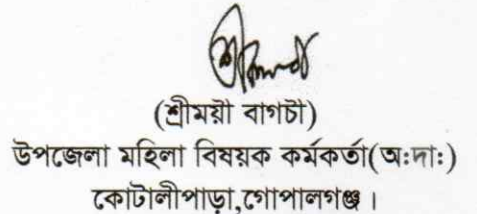 (শ্রীময়ী বাগচী)
উপজেলা মহিলা বিষয়ক কর্মকর্তা(অ:দা:)
কোটালীপাড়া,গোপালগঞ্জ।